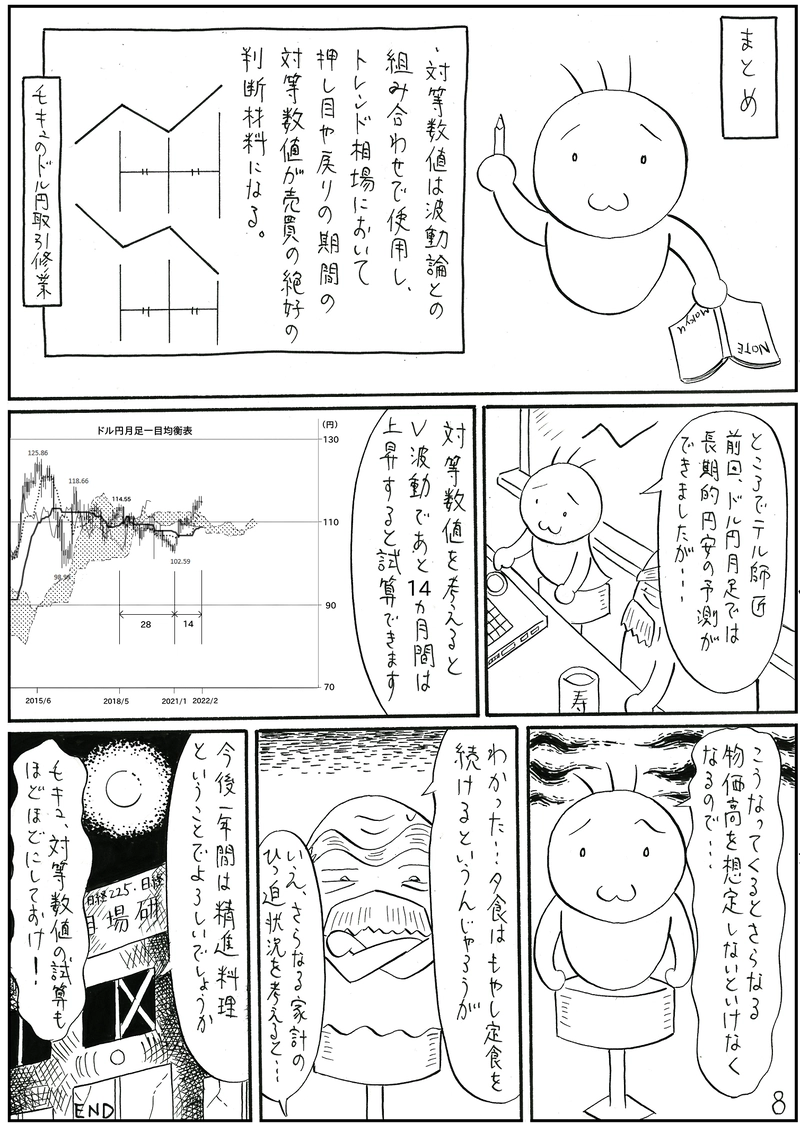 まとめ
・対等数値は波動論との
組み合わせで使用し、
トレンド相場において
押し目や戻りの期間の
対等数値が売買の絶好の
判断材料になる。
モキュのドル円取引修業
Mokyu
NOTE
ところでテル師匠
前回、ドル円月足では
長期的円安の予測が
できましたが・・・
寿
対等数値を考えると
V波動であと14カ月間は
上昇すると試算できます
ドル円月足一目均衡表
(円)
130
125.86
118.66
114.55
110
102.59
98.99
90
28
14
70
2015/6
2018/5
2021/1
2022/2
こうなってくるとさらなる
物価高を想定しないといけなく
なるので・・・
わかった・・・夕食はもやし定食を
続けるというんじゃろうが
いえ、さらなる家計の
ひっ迫状況を考えると・・・
今後一年間は精進料理
ということでよろしいでしょうか
モキュ、対等数値の試算も
ほどほどにしておけ！
日経225・日経
場研
END
8